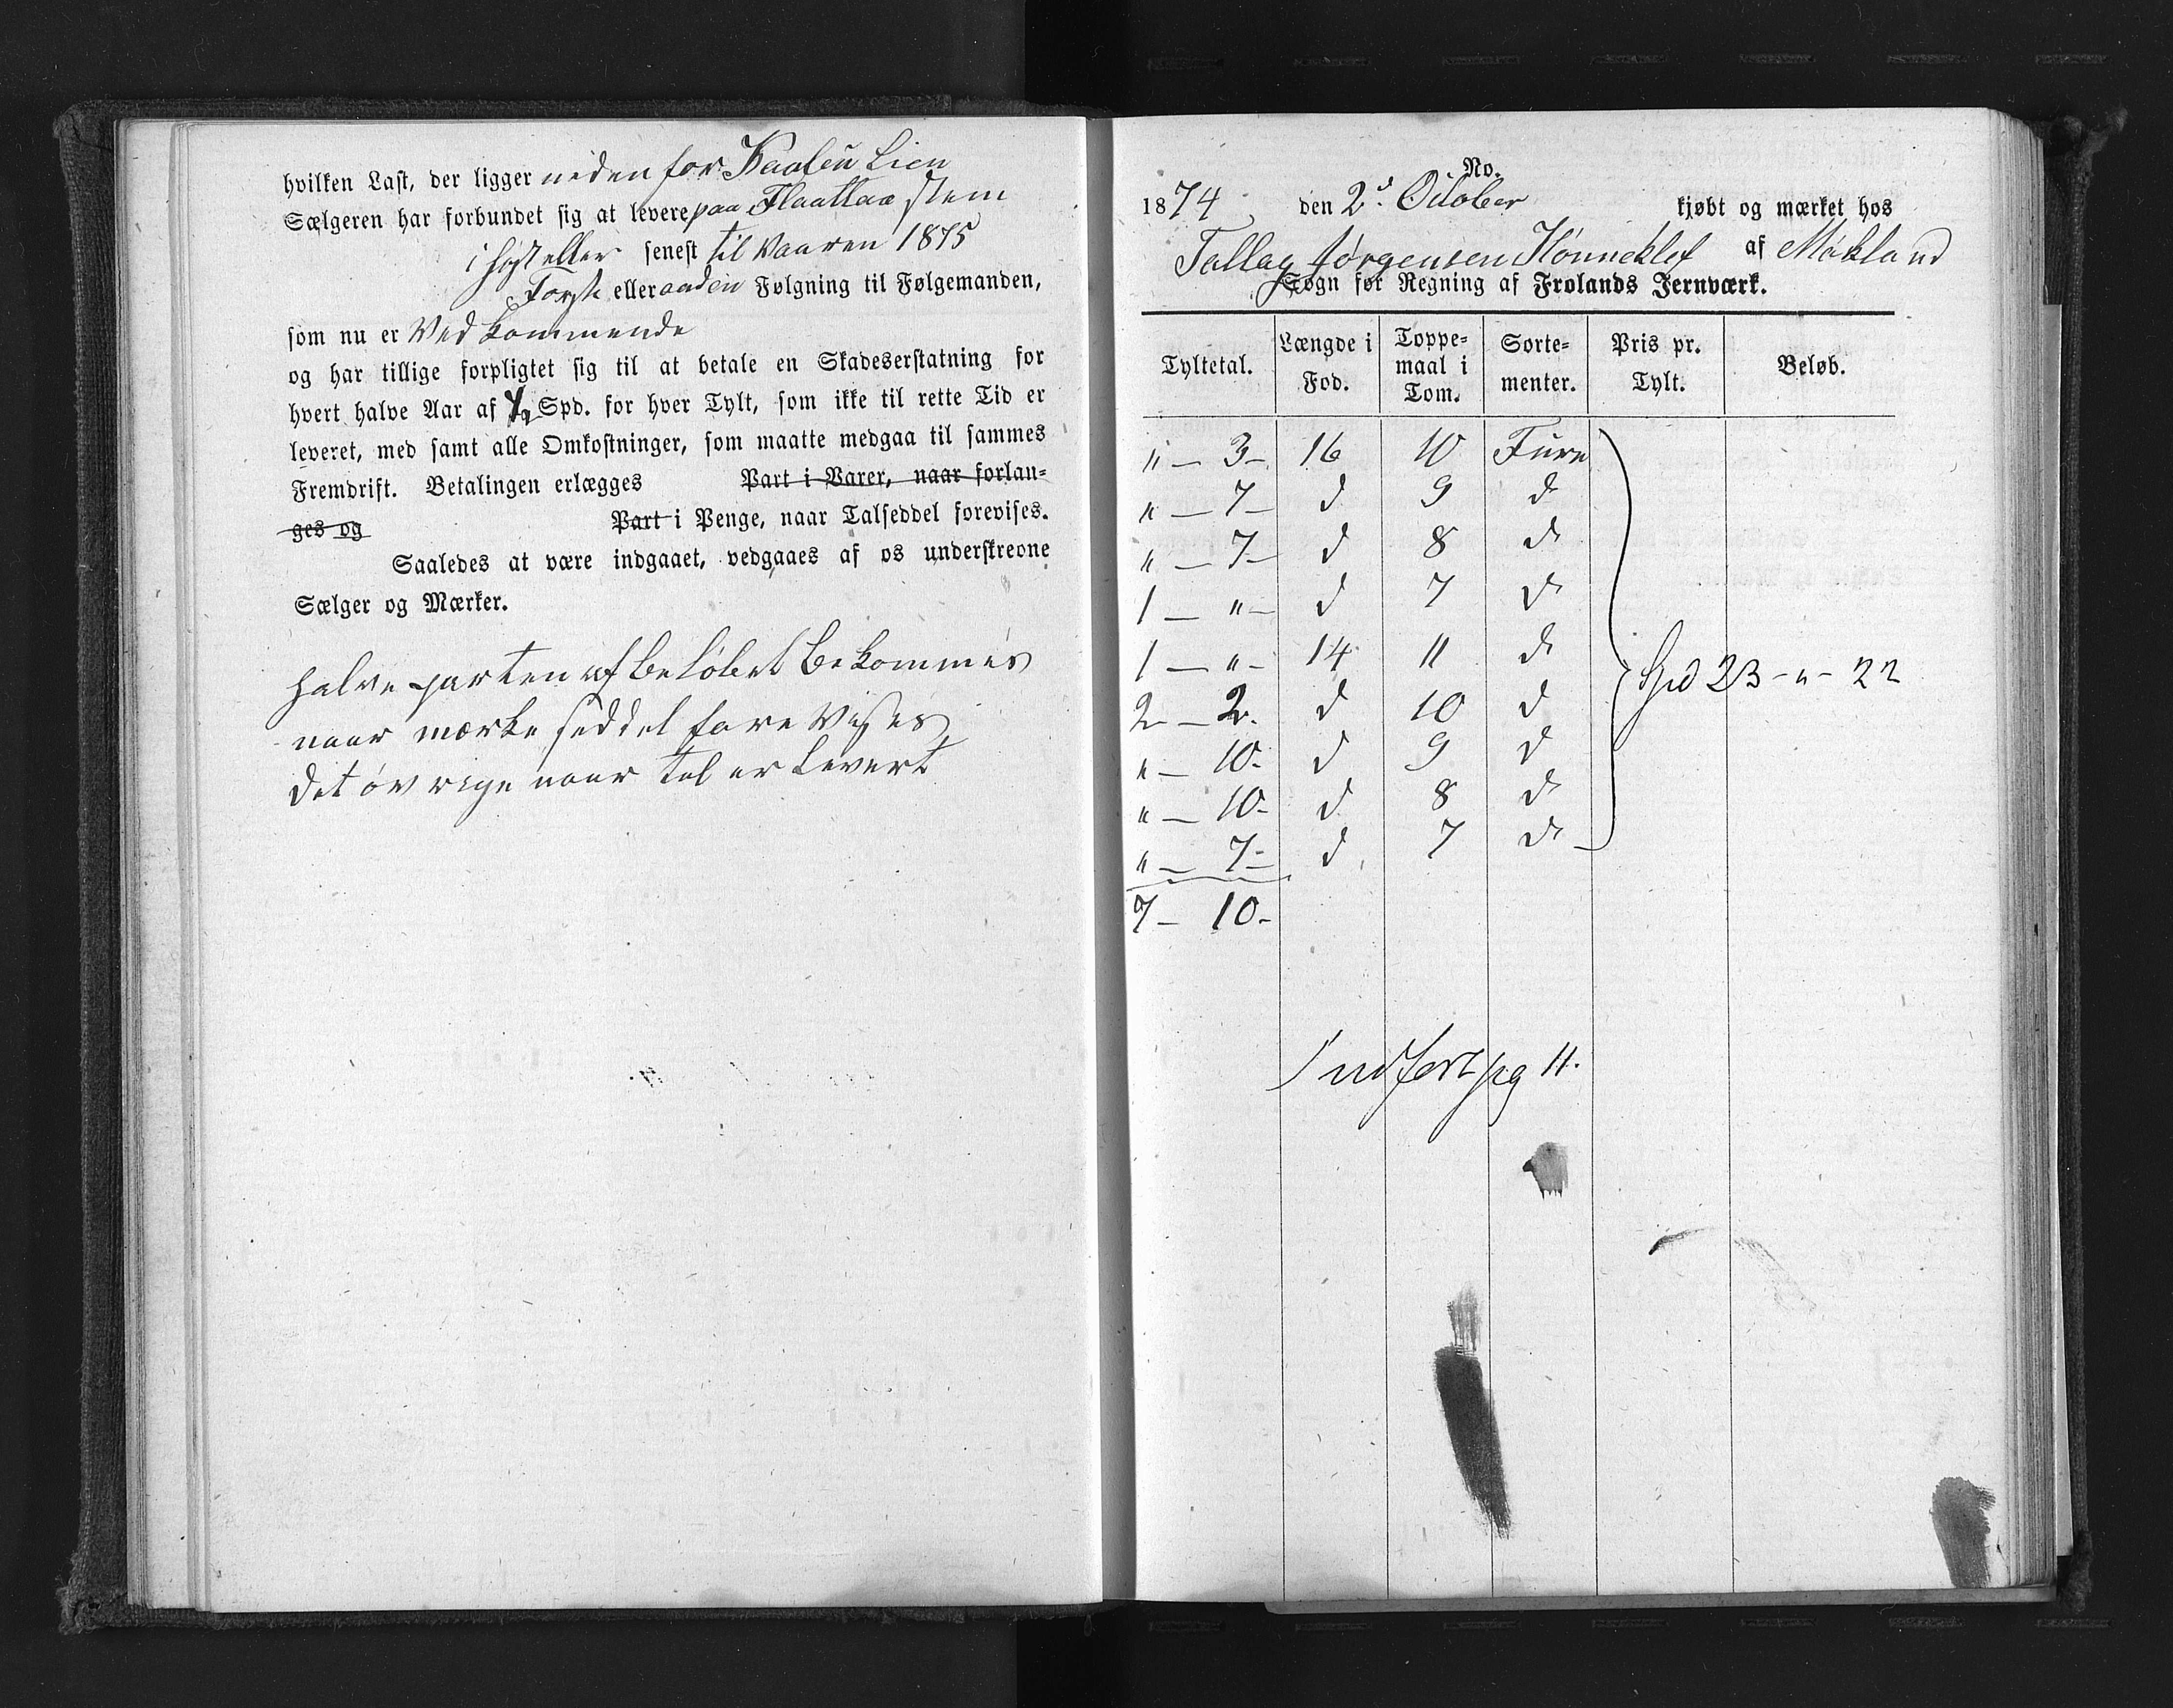 hvilken Last, der ligger neden for Kaaleü Lien
Sælgeren har forbundet sig at levere paa Flaatlaa stem
i høst eller senest til Vaaren 1875
Første eller anden Følgning til Følgemanden,
som nu er Ved kommende
og har tillige forpligtet sig til at betale en Skadeserstatning for
hvert halve Aar af 1/2 Spd. for hver Tylt, som ikke til rette Tid er
leveret, med samt alle Omkostninger, som maatte medgaa til sammes
Fremdrift. Betalingen erlægges Part i Varer, naar forlan-
ges og Part i Penge, naar Talseddel forevises.
Saaledes at være indgaaet, vedgaaes af os underskrevne
Sælger og Mærker.
halve parten af Beløbet Bekommes
naar mærke seddel fore Vises
det øv rige naar tal er Levert
No.
1874 den 2d October kjøbt og mærket hos
Tallag Jørgensen Hønneklef af Møkland
Sogn for Regning af Frolands Jernværk.
Tyltetal. Længde i Fod. Toppe-maal i Tom. Sorte-menter. Pris pr. Tylt. Beløb.
" — 3 — 16 10 Furu
" — 7 — d 9 d
" — 7 — d 8 d
1 — " — d 7 d
1 — " — 14 11 d
Spd 23 - " - 22
2 — 2. d 10 d
" — 10. d 9 d
" — 10. d 8 d
" — 7 — d 7 d
7 — 10 -
Indført pg 11.